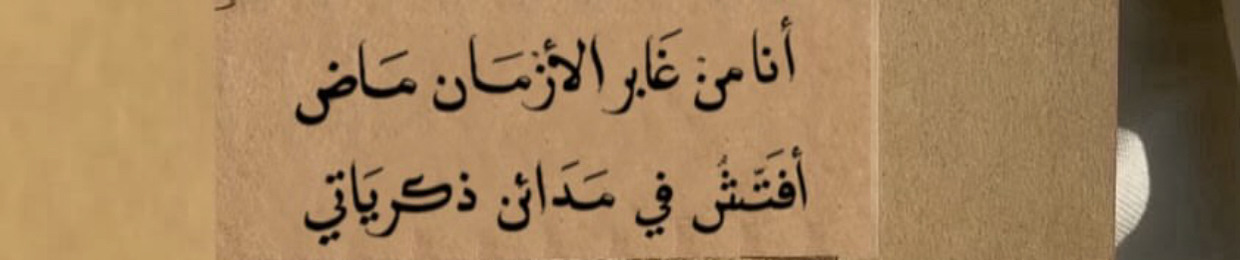 أنا من غَابر الأزمَان مَاض
أفتَّشُ في مَدَائن ذكريَاتي